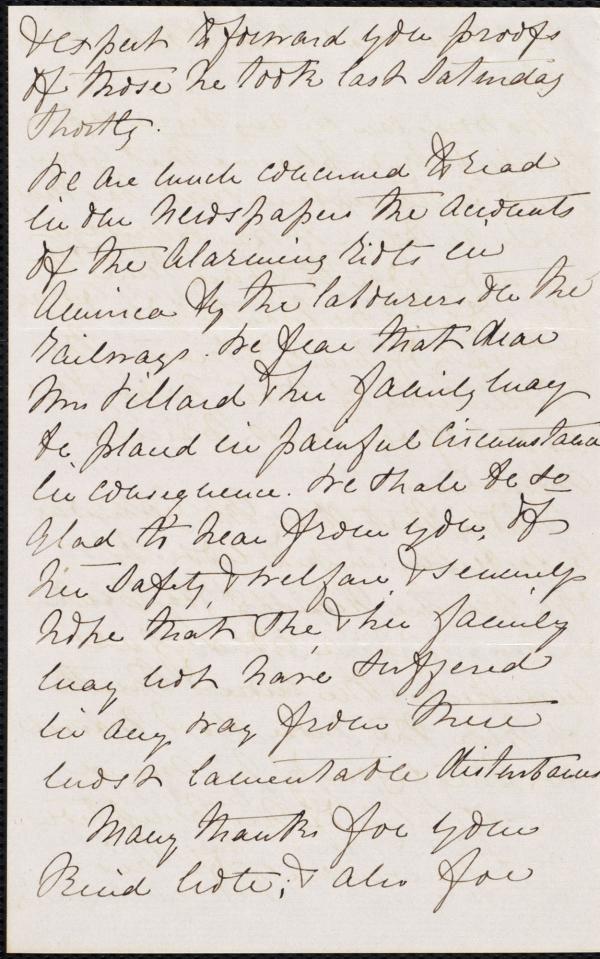 & expect to forward you proofs
of those he took last Saturday
shortly.
We are much concerned to read
in our Newspapers the accounts
of the alarming Riots in
America by the labourers on the
Railways. We fear that dear
Mrs Villard & her family may
be placed in painful circumstances
in consequence. We shall be so
glad to hear from you, of
her safety & welfare & sincerely
hope that she & her family
may not have suffered
in any way from these
most lamentable disturbances
Many thanks for your
kind note; & also for